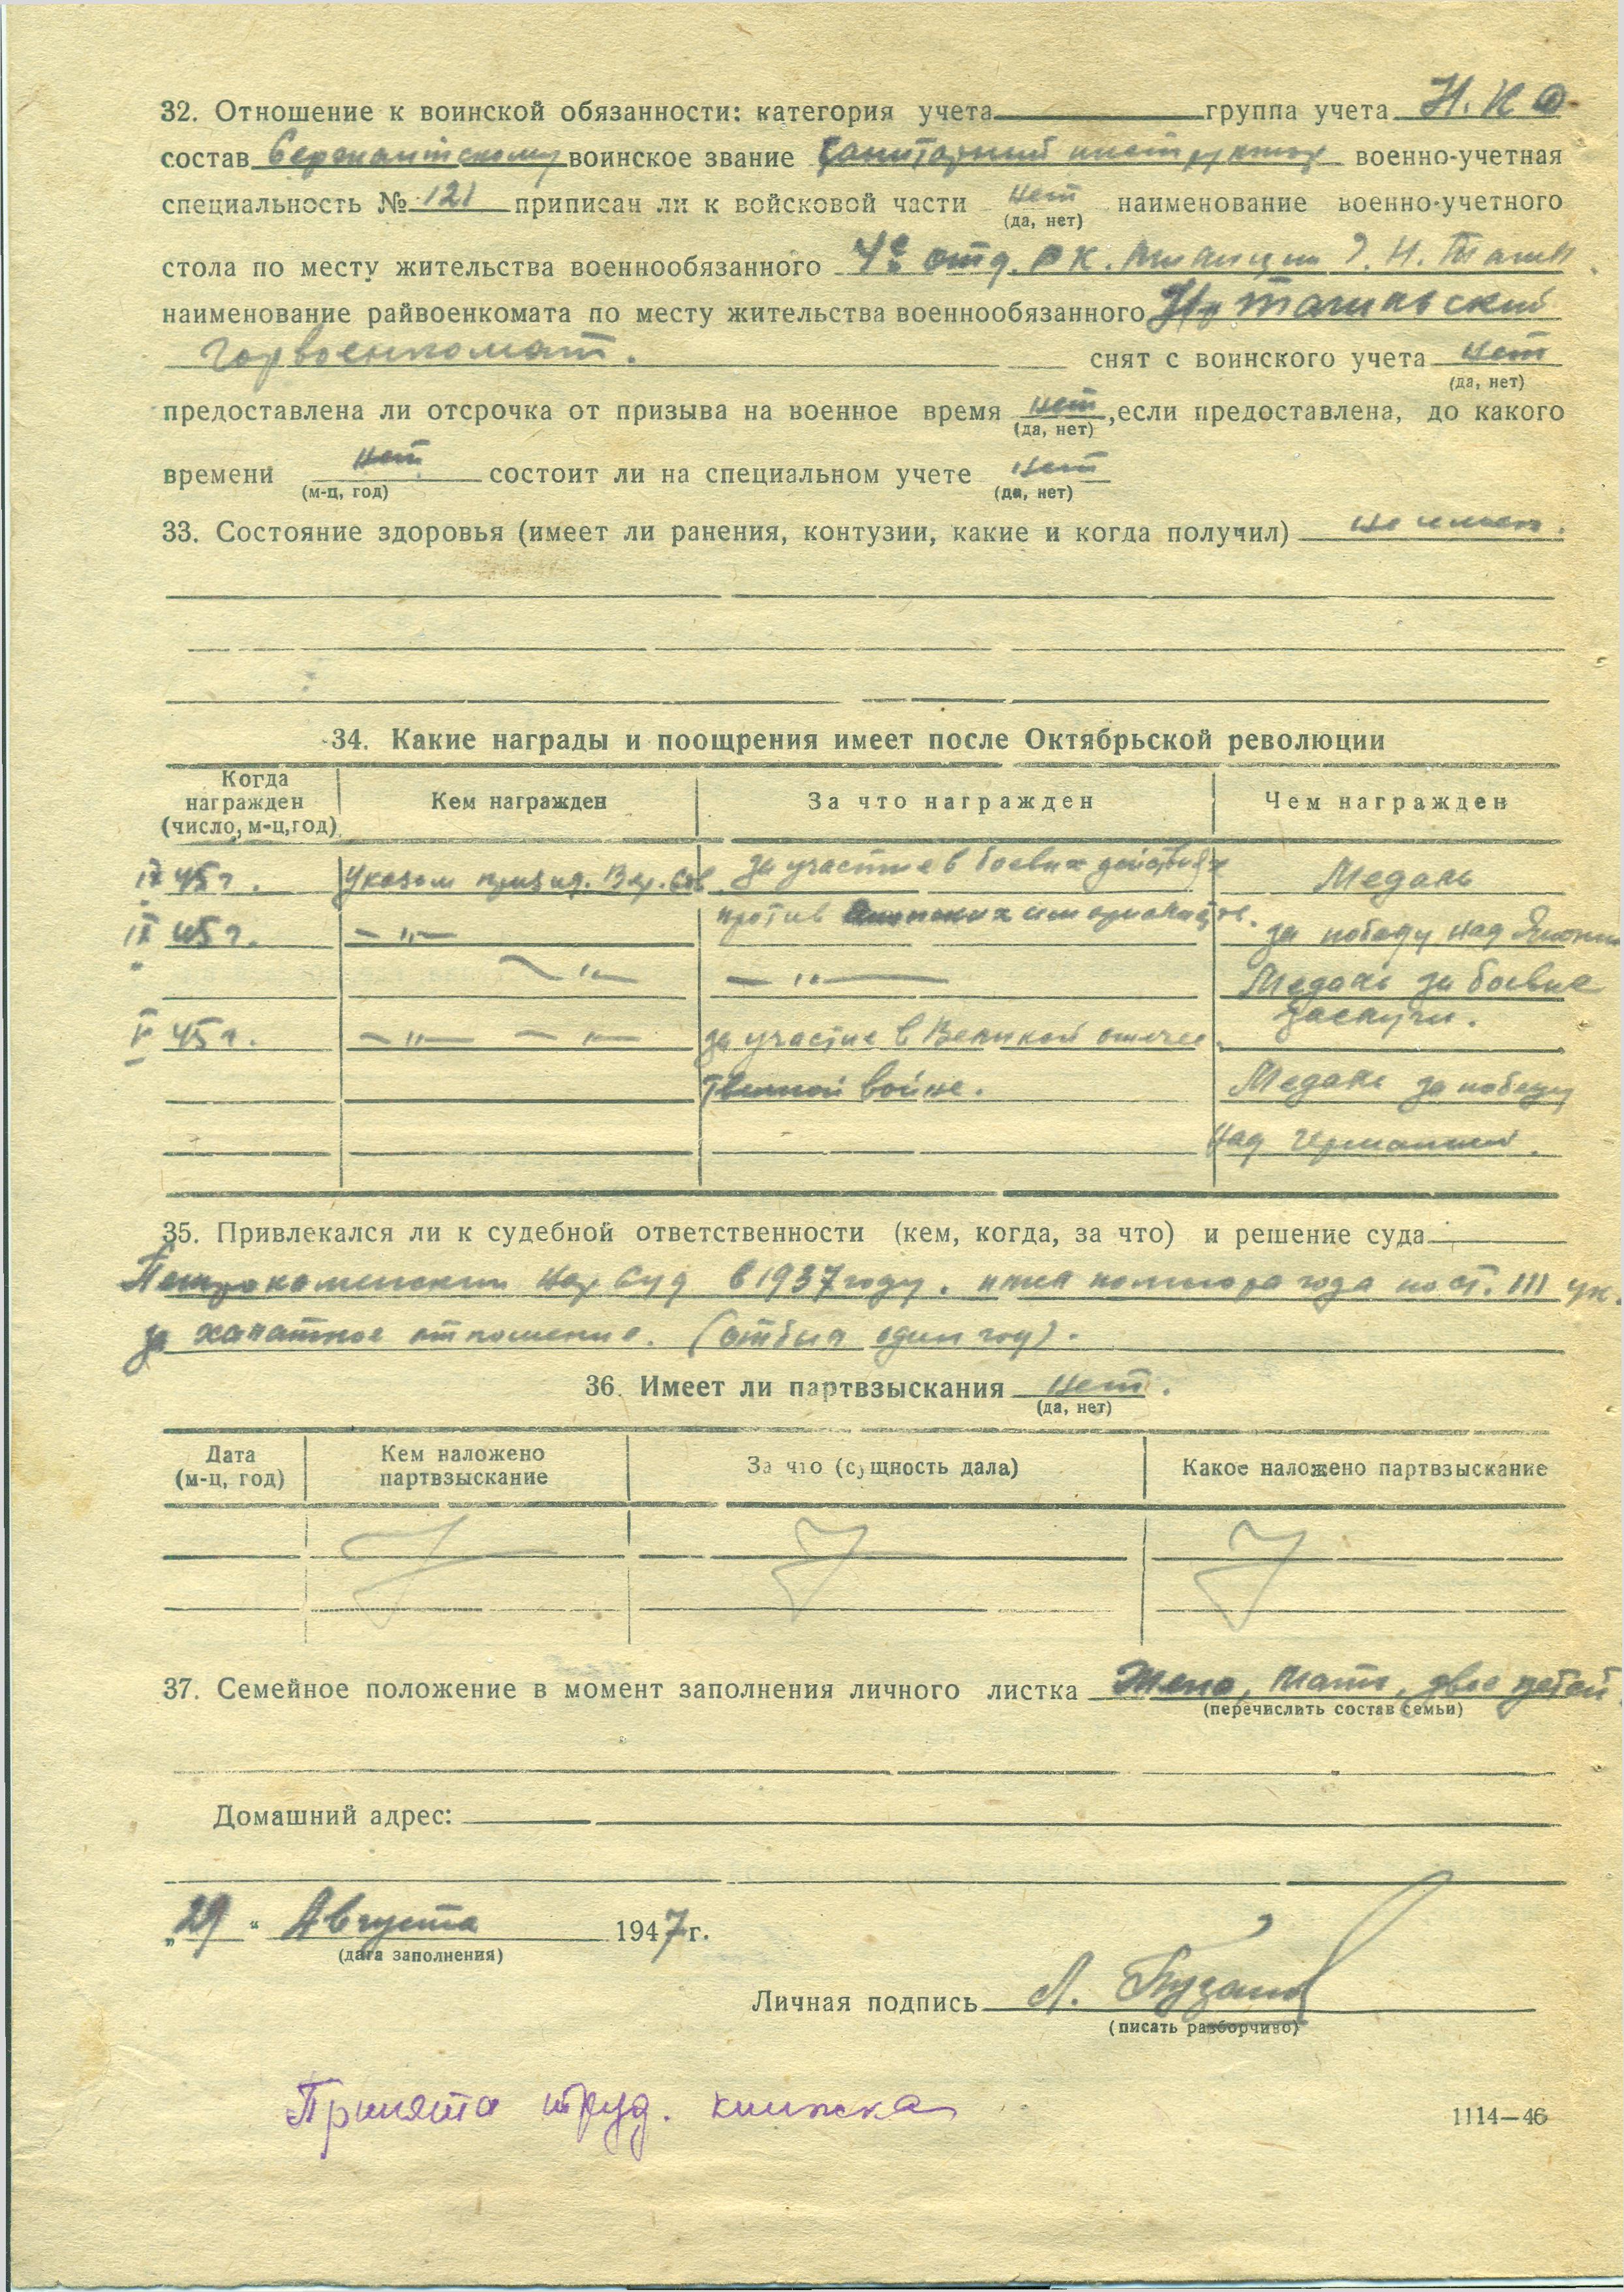 32. Отношение к воинской обязанности: категория учета группа учета Н.К.О.
состав Сержантскому воинское звание Санитарный инструктор военно-учетная
специальность № 121 приписан ли к войсковой части нет наименование военно-учетного
(да, нет)
стола по месту жительства военнообязанного 4е отд. РК. милиции г. Н. Тагил
наименование райвоенкомата по месту жительства военнообязанного Н/Тагильский
Горвоенкомат. снят с воинского учета нет
(да, нет)
предоставлена ли отсрочка от призыва на военное время нет, если предоставлена, до какого
(да, нет)
времени нет состоит ли на специальном учете нет
(м-ц, год) (да, нет)
33. Состояние здоровья (имеет ли ранения, контузии, какие и когда получил) не имею.
34. Какие награды и поощрения имеет после Октябрьской революции
Когда награжден (число, м-ц, год) Кем награжден За что награжден Чем награжден
45 г. Указом презид. Вер. Сов за участие в боевых действиях Медаль
IX 45 г. -"- против японских империалистов. за победу над Японии
-"- -"- Медаль за боевые
заслуги.
V 45 г. -"- -"- за участие в Великой отечес
твенной войне. Медаль за победу
над Германией.
35. Привлекался ли к судебной ответственности (кем, когда, за что) и решение суда
Петрокаменским нар Суд в 1937 году. полтора года по ст. 111 ук.
за халатное отношение. (отбыл один год).
36. Имеет ли партвзыскания нет.
(да, нет)
Дата (м-ц, год) Кем наложено партвзыскание За что (сущность дала) Какое наложено партвзыскание
37. Семейное положение в момент заполнения личного листка Жена, мать, двое детей
(перечислить состав семьи)
Домашний адрес:
„29“ Августа 1947 г.
(дата заполнения)
Личная подпись Л.
(писать разборчиво)
Принята труд. книжка
1114—46